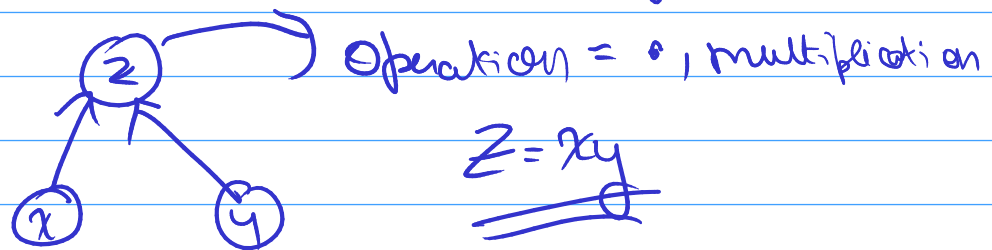 z
Operation = •, multiplication
z = xy
x
y